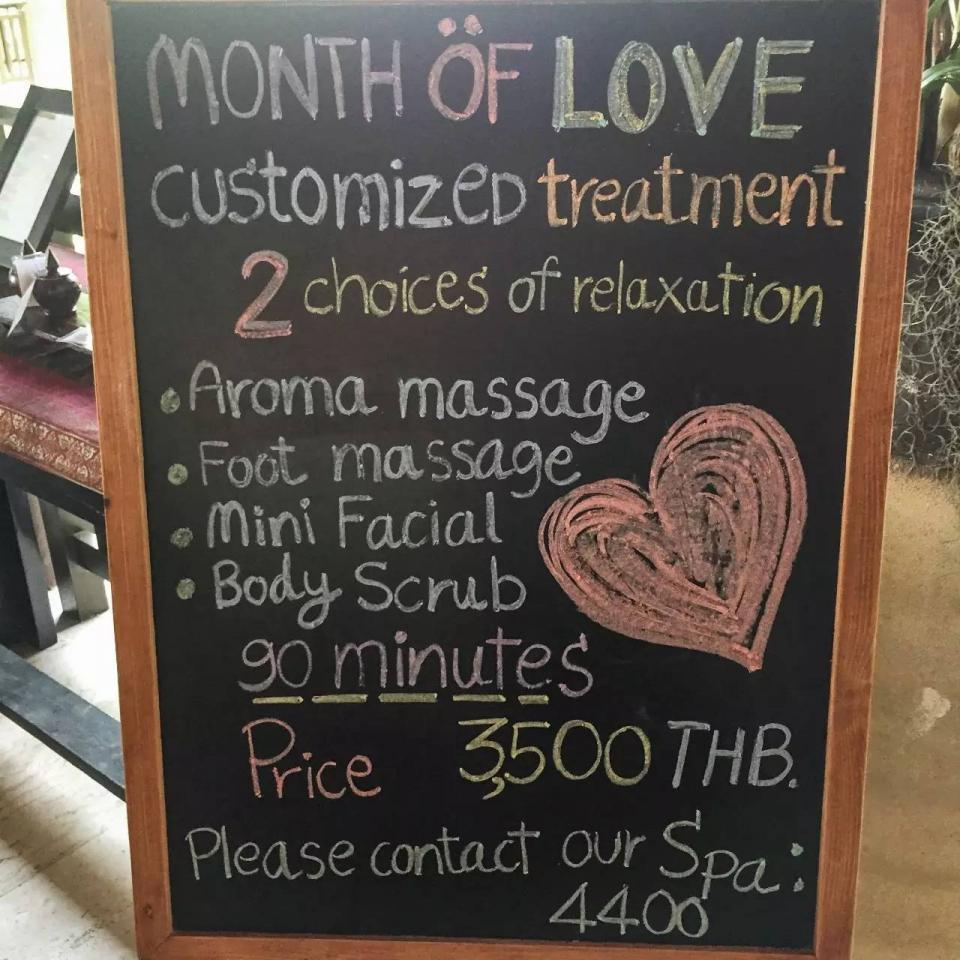 MONTH ÖF LOVE
customized treatment
2 choices of relaxation
• Aroma massage
• Foot massage
• Mini Facial
• Body Scrub
90 minutes
Price 3,500 THB.
Please contact our Spa:
4400